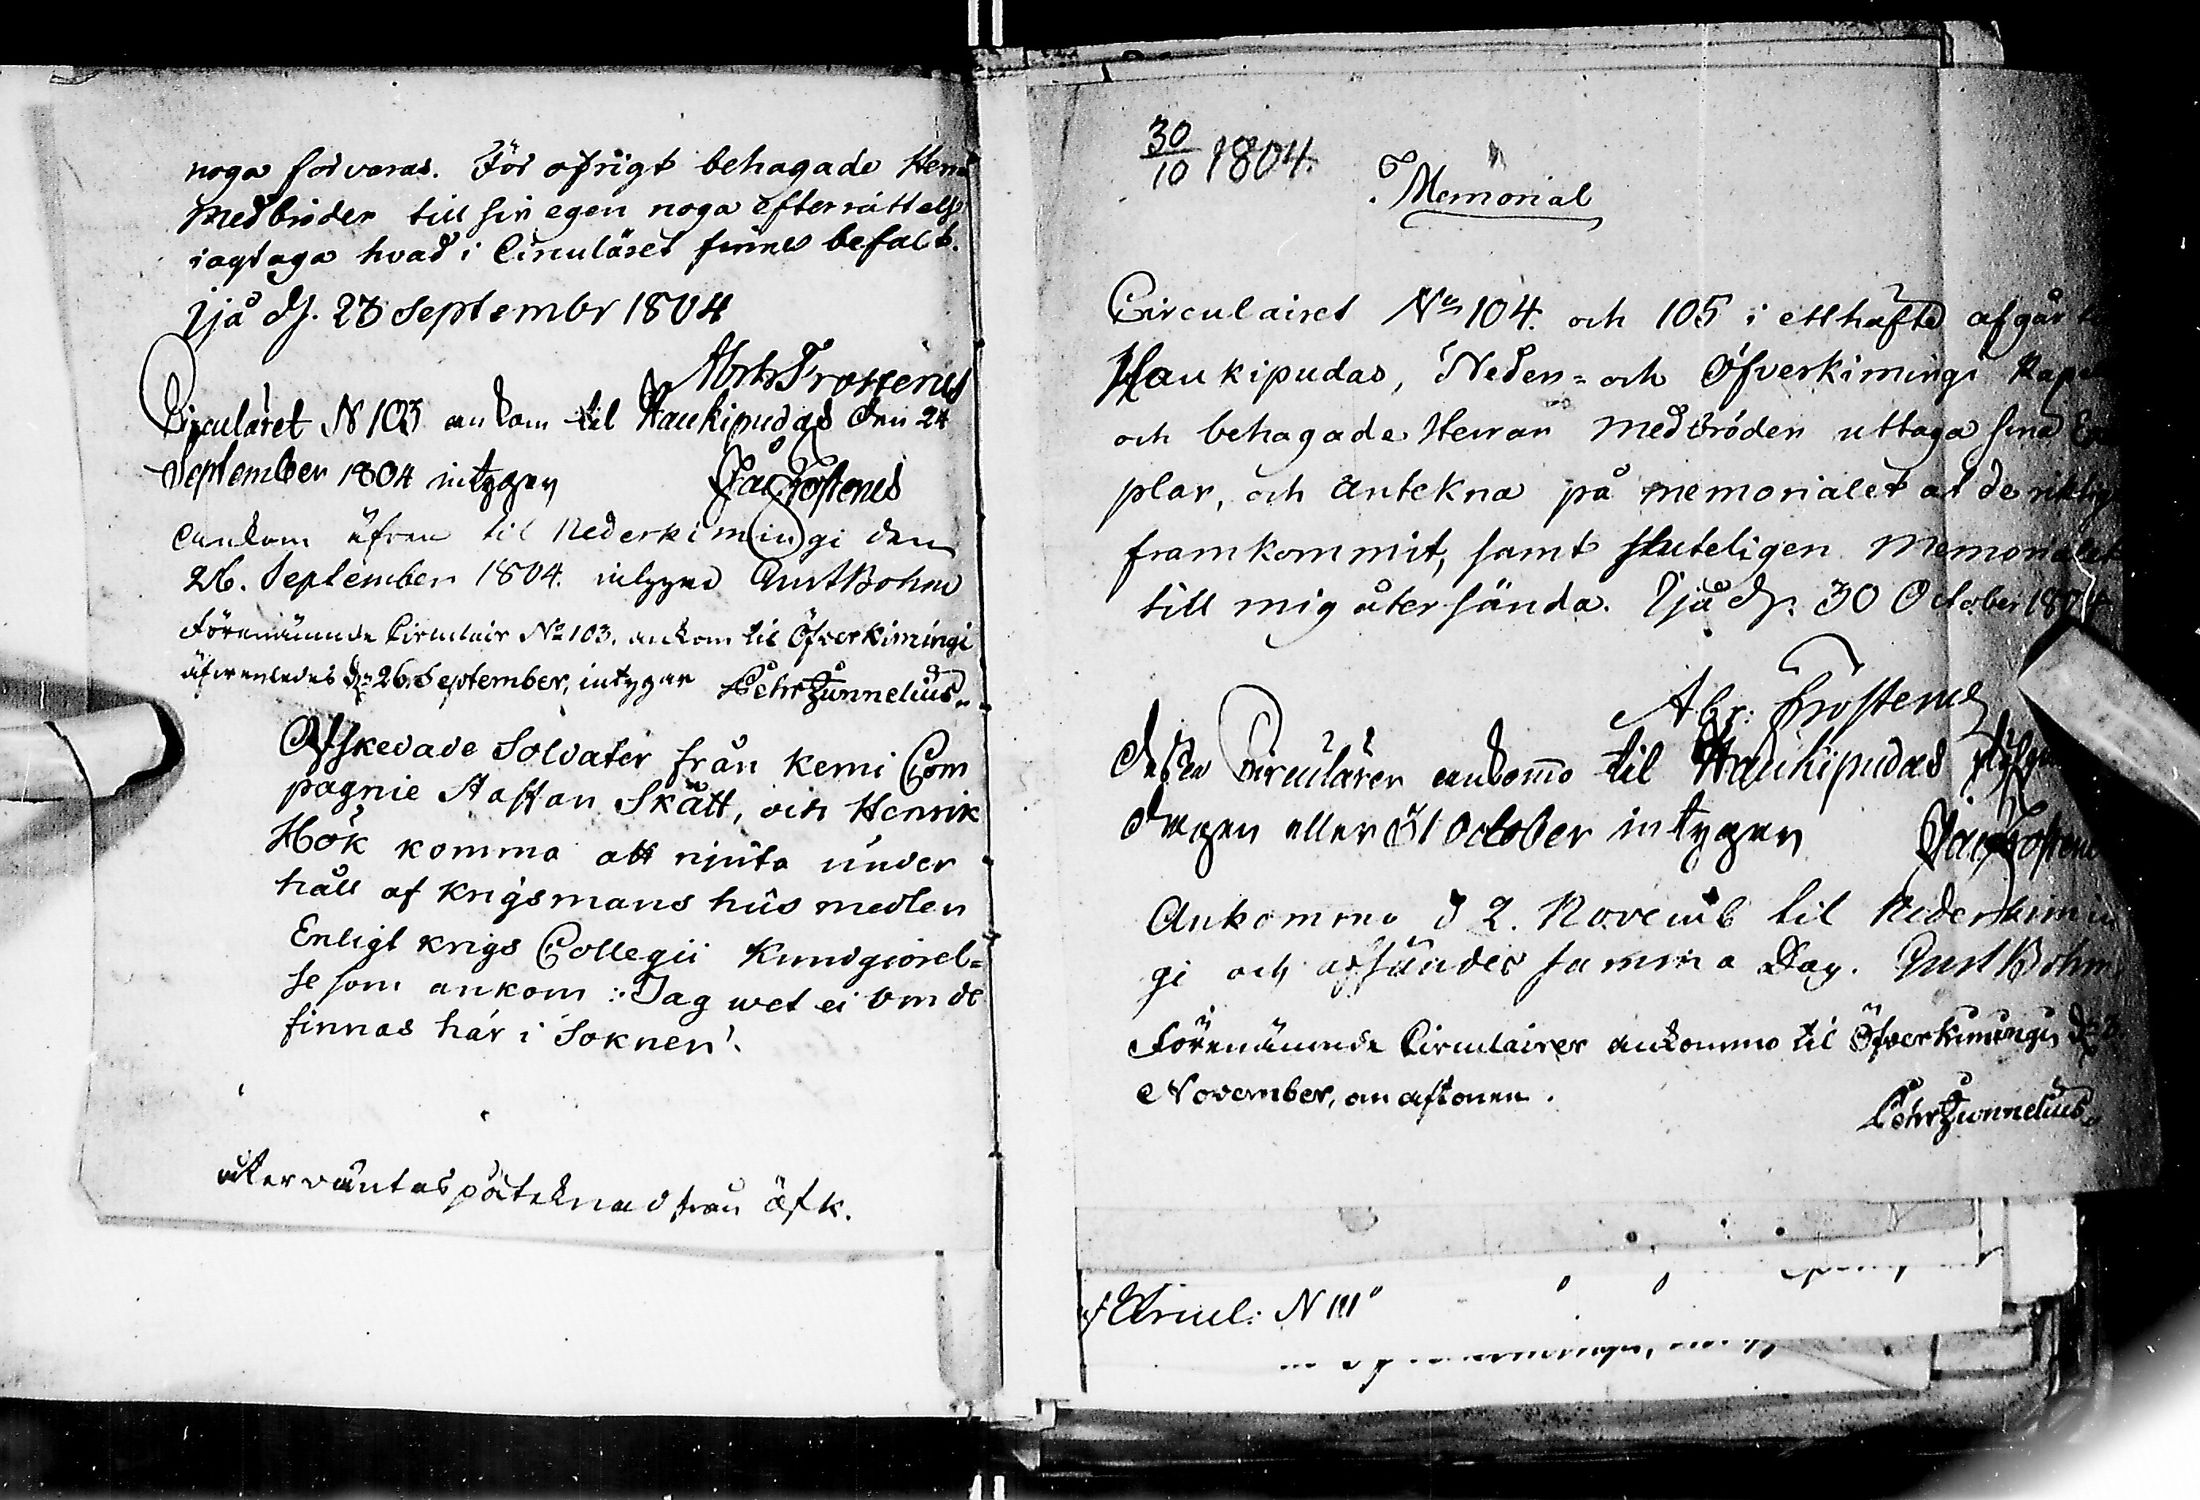 noga forvaras. För öfrigt behagade
Medbröder till sin egen noga efterrättels
iagtaga hvad i Circuläret finnes befalt.
Ijå d. 23 Septembr 1804
Abrh Frosterus
Circuläret N 103 ankom til Haukipudas den 24
September 1804 intygar Jac Frosterus
ankom äfven til Nederkimingi den
26. September 1804. intygar Gust Bohm
Förenämnde Circulair No 103. ankom til Öfverkimingi
äfvenledes d. 26. September, intygar Pehr Zunnelius.
Afskedade Soldater från Kemi Com
pagnie Staffan Skått, och Henrik
Hök komma att njuta under
håll af krigsmans hus medlen
Enligt krigs Collegii Kundgiörel=
se som ankom :. Jag wet ei om de
finnas här i Soknen.
återväntas påteknad från öfk.
30/10 1804.
Memorial
Circulairet No 104. och 105 i ett häfte afgår
Haukipudas, Neden= och Öfverkimingi
och behagade Herrar Medbröder uttaga sina
plar, och antekna på memorialet at de riktigt
framkommit, samt sluteligen Memorialet
till mig återsända. Ijå d. 30 October 1804
Abr: Frosterus
Desse Circulärer ankommo til Haukipudas
dagen eller 31 October intygar Jac Frosterus
Ankommo d 2. Novemb til Nederkimin
gi och afsändes samma Dag. Gust Bohm
Förenämnde Circulairer ankommo til Öfverkimingi d.
November, om aftonen.
Pehr Zunnelius.
Circul: N 111